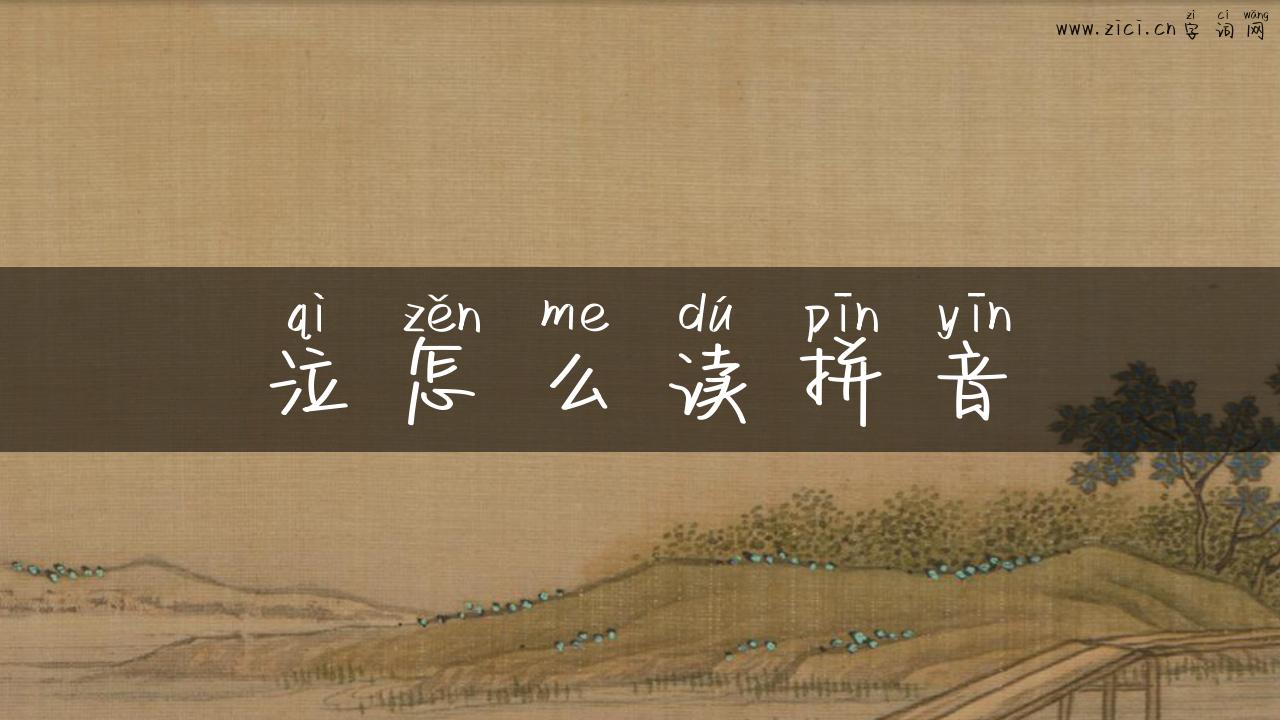 zì cí wǎng
www.zici.cn 字词网
qì zěn me dú pīn yīn
泣怎么读拼音